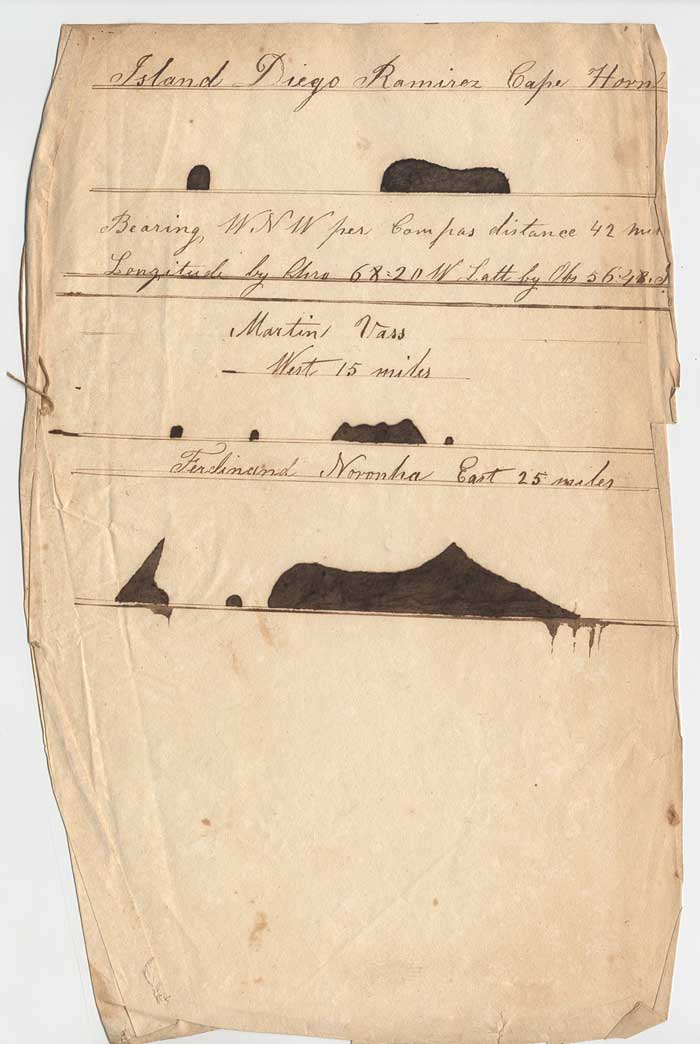 Island Diego Ramirez Cape Horn
Bearing, W.N.W per Compas distance 42
Longitude by Chro 68:20 W Latt by Obs 56:48.S
Martin Vass
West 15 miles
Ferdinand Noronha East 25 miles